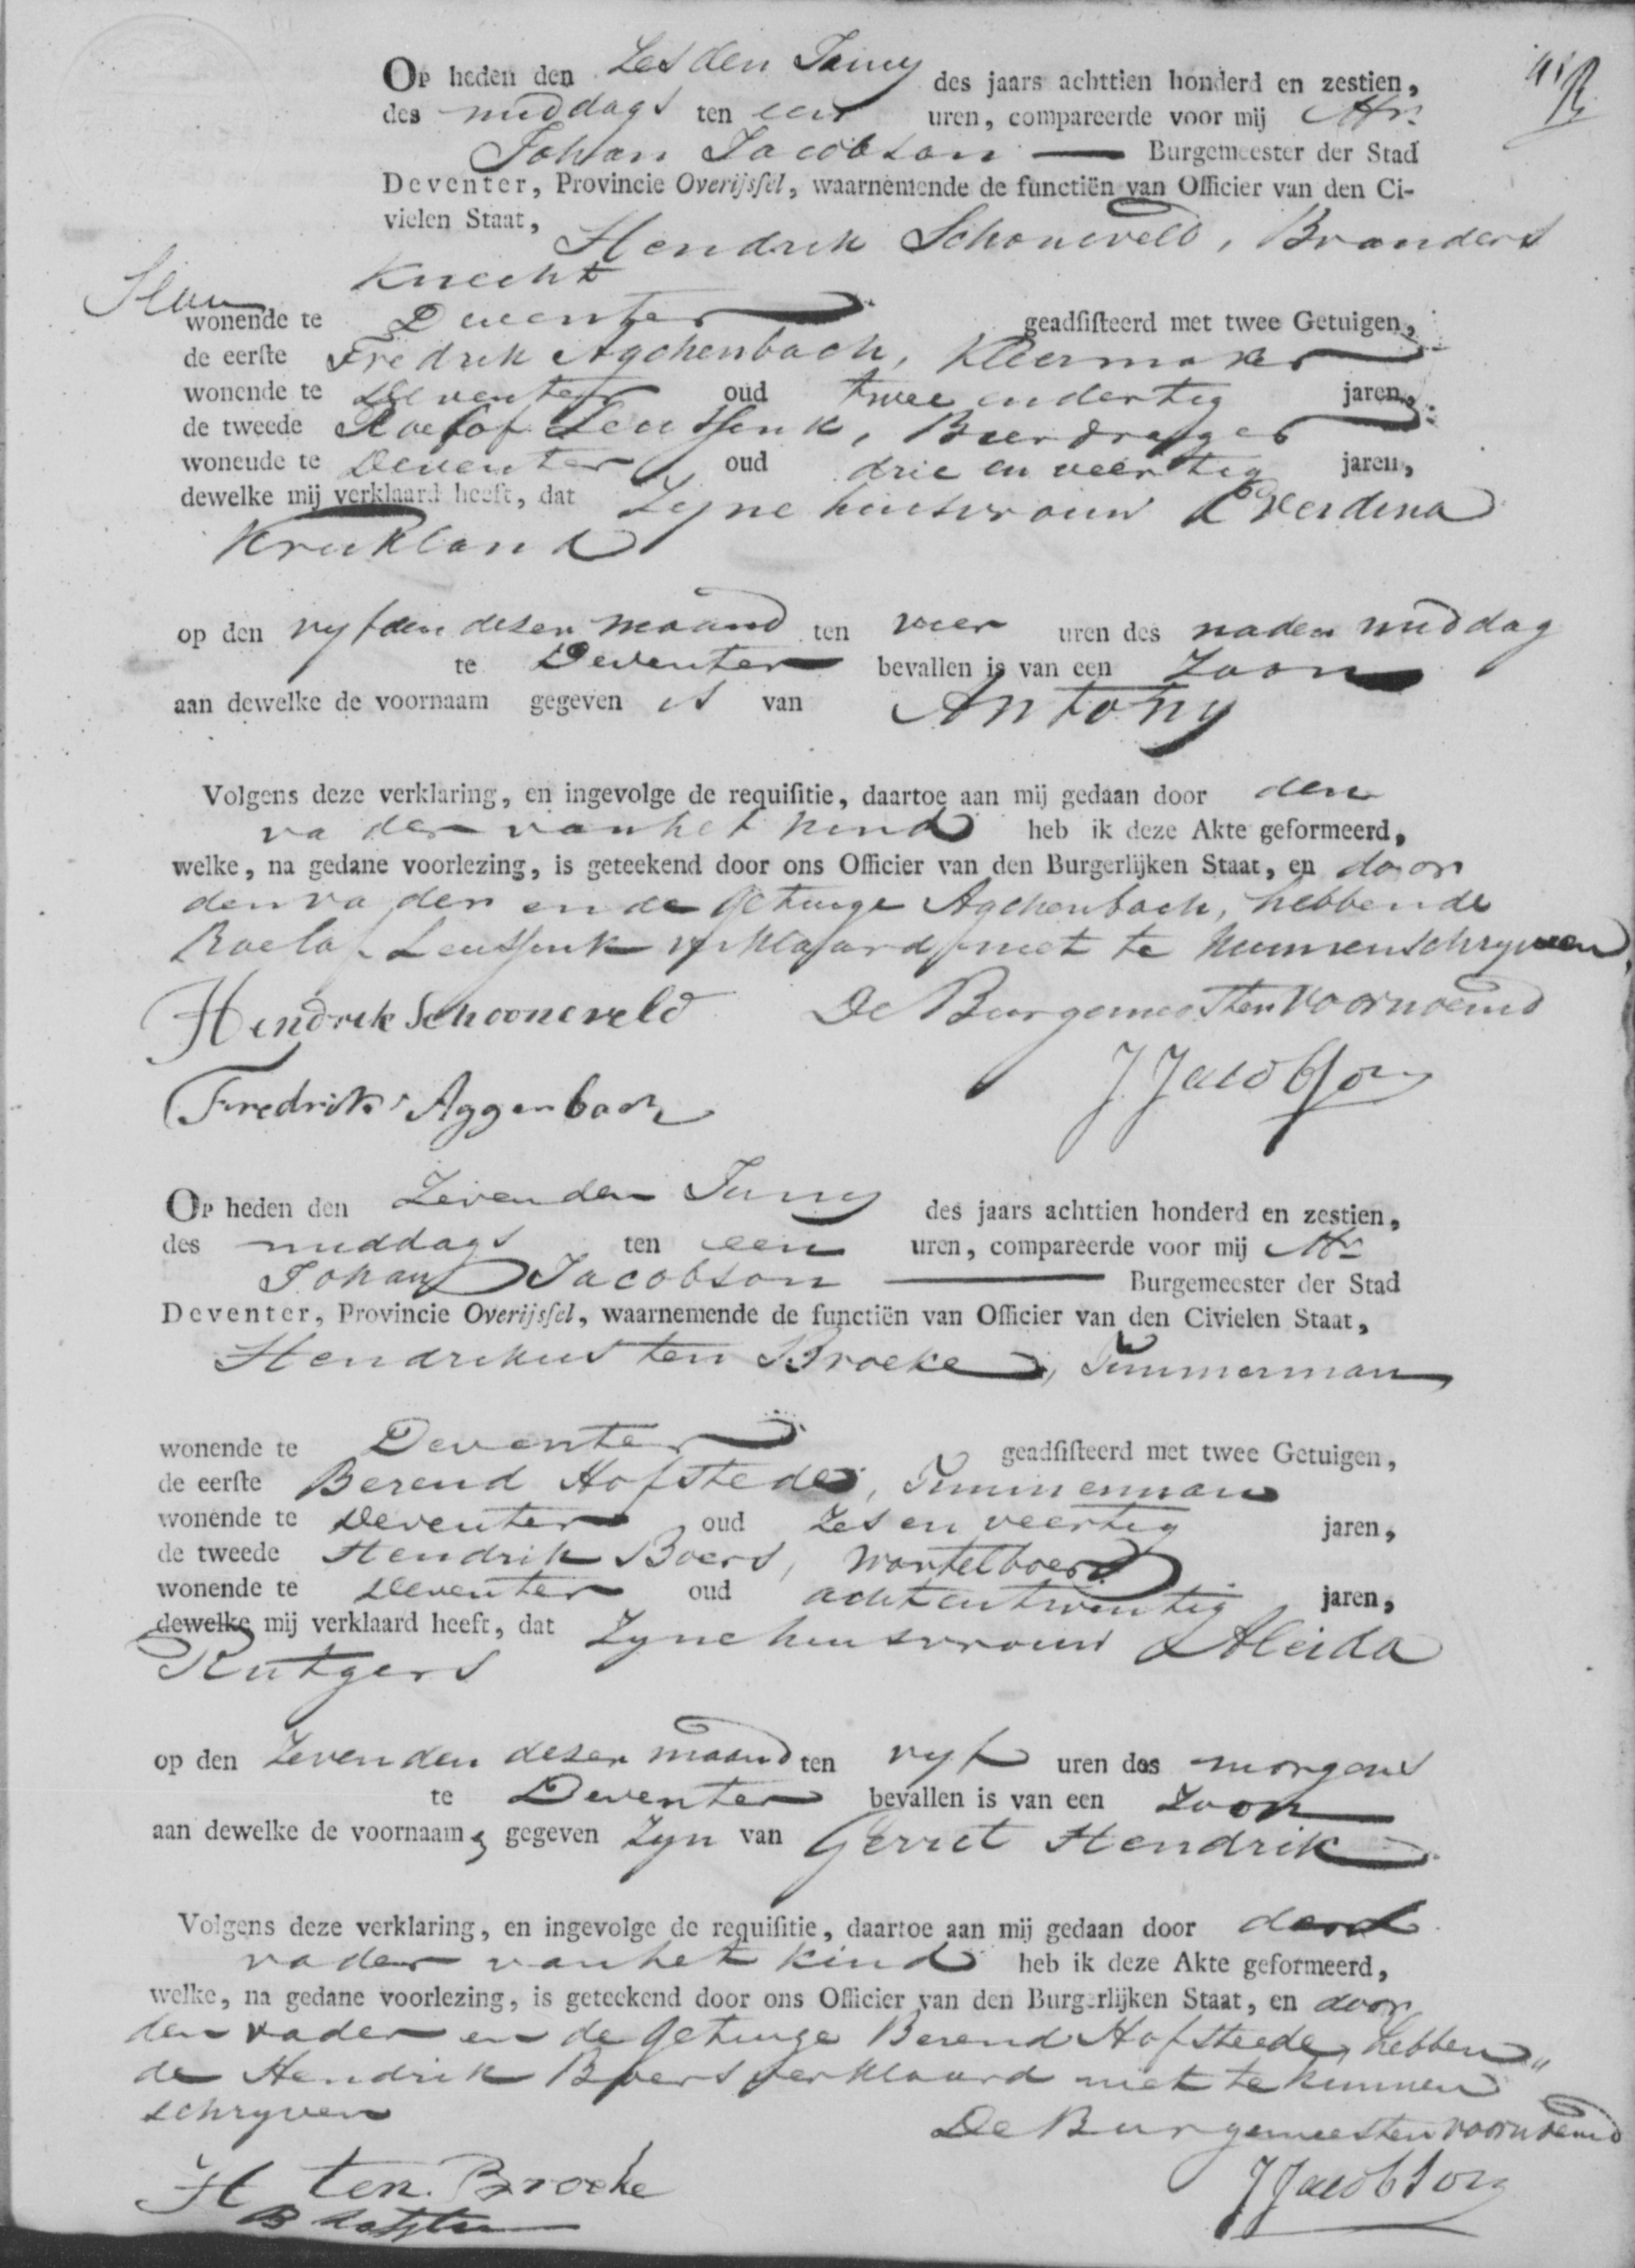 Op heden den Zesden Juny des jaars achttien honderd en zestien,
des middags ten een uren, compareerde voor mij Mr.
Johan Jacobson Burgemeester der Stad
Deventer, Provincie Overijsſel, waarnemende de functiën van Officier van den Ci-
vielen Staat,
Hendrik Schoneveld, Branders
Knecht
wonende te Deventer geadſiſteerd met twee Getuigen,
de eerſte Fredrik Agchenbach, Kleermaker
wonende te Deventer oud twee en dertig jaren,
de tweede Roelof Leussink, Bierdrager
wonende te Deventer oud drie en veertig jaren,
dewelke mij verklaard heeft, dat Zyne huisvrouw Everdina
Kruikland
op den vyfden deser maand ten vier uren des nademiddag
te Deventer bevallen is van een Zoon
aan dewelke de voornaam gegeven is van Antony
Volgens deze verklaring, en ingevolge de requiſitie, daartoe aan mij gedaan door den
vader van het kind heb ik deze Akte geformeerd,
welke, na gedane voorlezing, is geteekend door ons Officier van den Burgerlijken Staat, en door
den vader en de Getuige Agchenbach, hebbende
Roelof Leussink verklaard niet te kunnen schryven
Hendrik Schooneveld De Burgemeester voornoemd
J Jacobson
Fredrik Aggenbach
Op heden den Zevenden Juny des jaars achttien honderd en zestien,
des middags ten een uren, compareerde voor mij Mr
Johan Jacobson Burgemeester der Stad
Deventer, Provincie Overijsſel, waarnemende de functiën van Officier van den Civielen Staat,
Hendrikus ten Broeke, Timmerman
wonende te Deventer geadſiſteerd met twee Getuigen,
de eerſte Berend Hofstede, Timmerman
wonende te Deventer oud Zes en veertig jaren,
de tweede Hendrik Boers, Wortelboer
wonende te Deventer oud acht en twintig jaren,
dewelke mij verklaard heeft, dat Zyne huisvrouw Aleida
Rutgers
op den Zevenden deser maand ten vyf uren des morgens
te Deventer bevallen is van een Zoon
aan dewelke de voornaam, gegeven Zyn van Gerrit Hendrik
Volgens deze verklaring, en ingevolge de requiſitie, daartoe aan mij gedaan door den
vader van het kind heb ik deze Akte geformeerd,
welke, na gedane voorlezing, is geteekend door ons Officier van den Burgerlijken Staat, en door
den vader en de Getuige Berend Hofsteede, hebben"
de Hendrik Boers verklaard niet te kunnen
schryven
De Burgemeester voornoemd
H ten Broeke J Jacobson